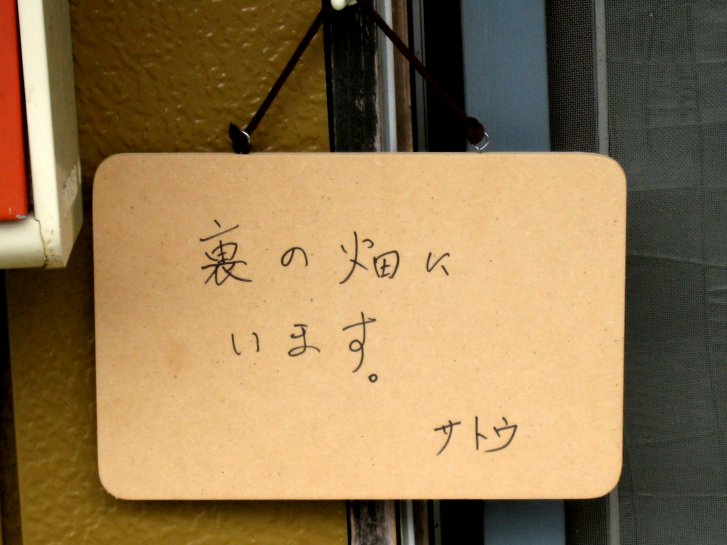 裏の畑に
います。
サトウ